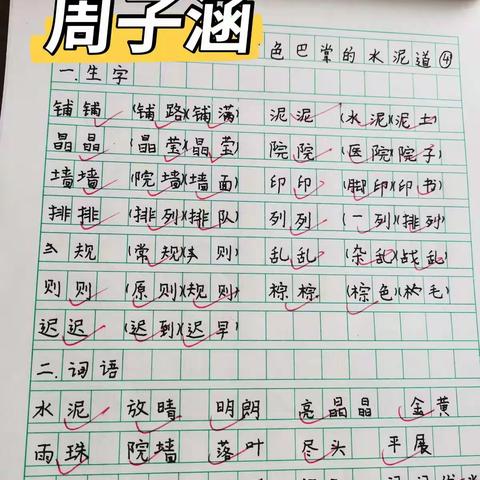 周子涵
色巴掌的水泥道④
一.生字
铺铺 (铺路)(铺满) 泥泥 (水泥)(泥土)
晶晶 (晶莹)(晶莹) 院院 (医院)(院子)
墙墙 (院墙)(墙面) 印印 (脚印)(印书)
排排 (排列)(排队) 列列 (一列)(排列)
规 (常规)(则) 乱乱 (杂乱)(战乱)
则则 (原则)(规则) 棕棕 (棕色)(毛)
迟迟 (迟到)(迟早)
二.词语
水泥 放晴 明朗 亮晶晶 金黄
雨珠 院墙 落叶 尽头 平展